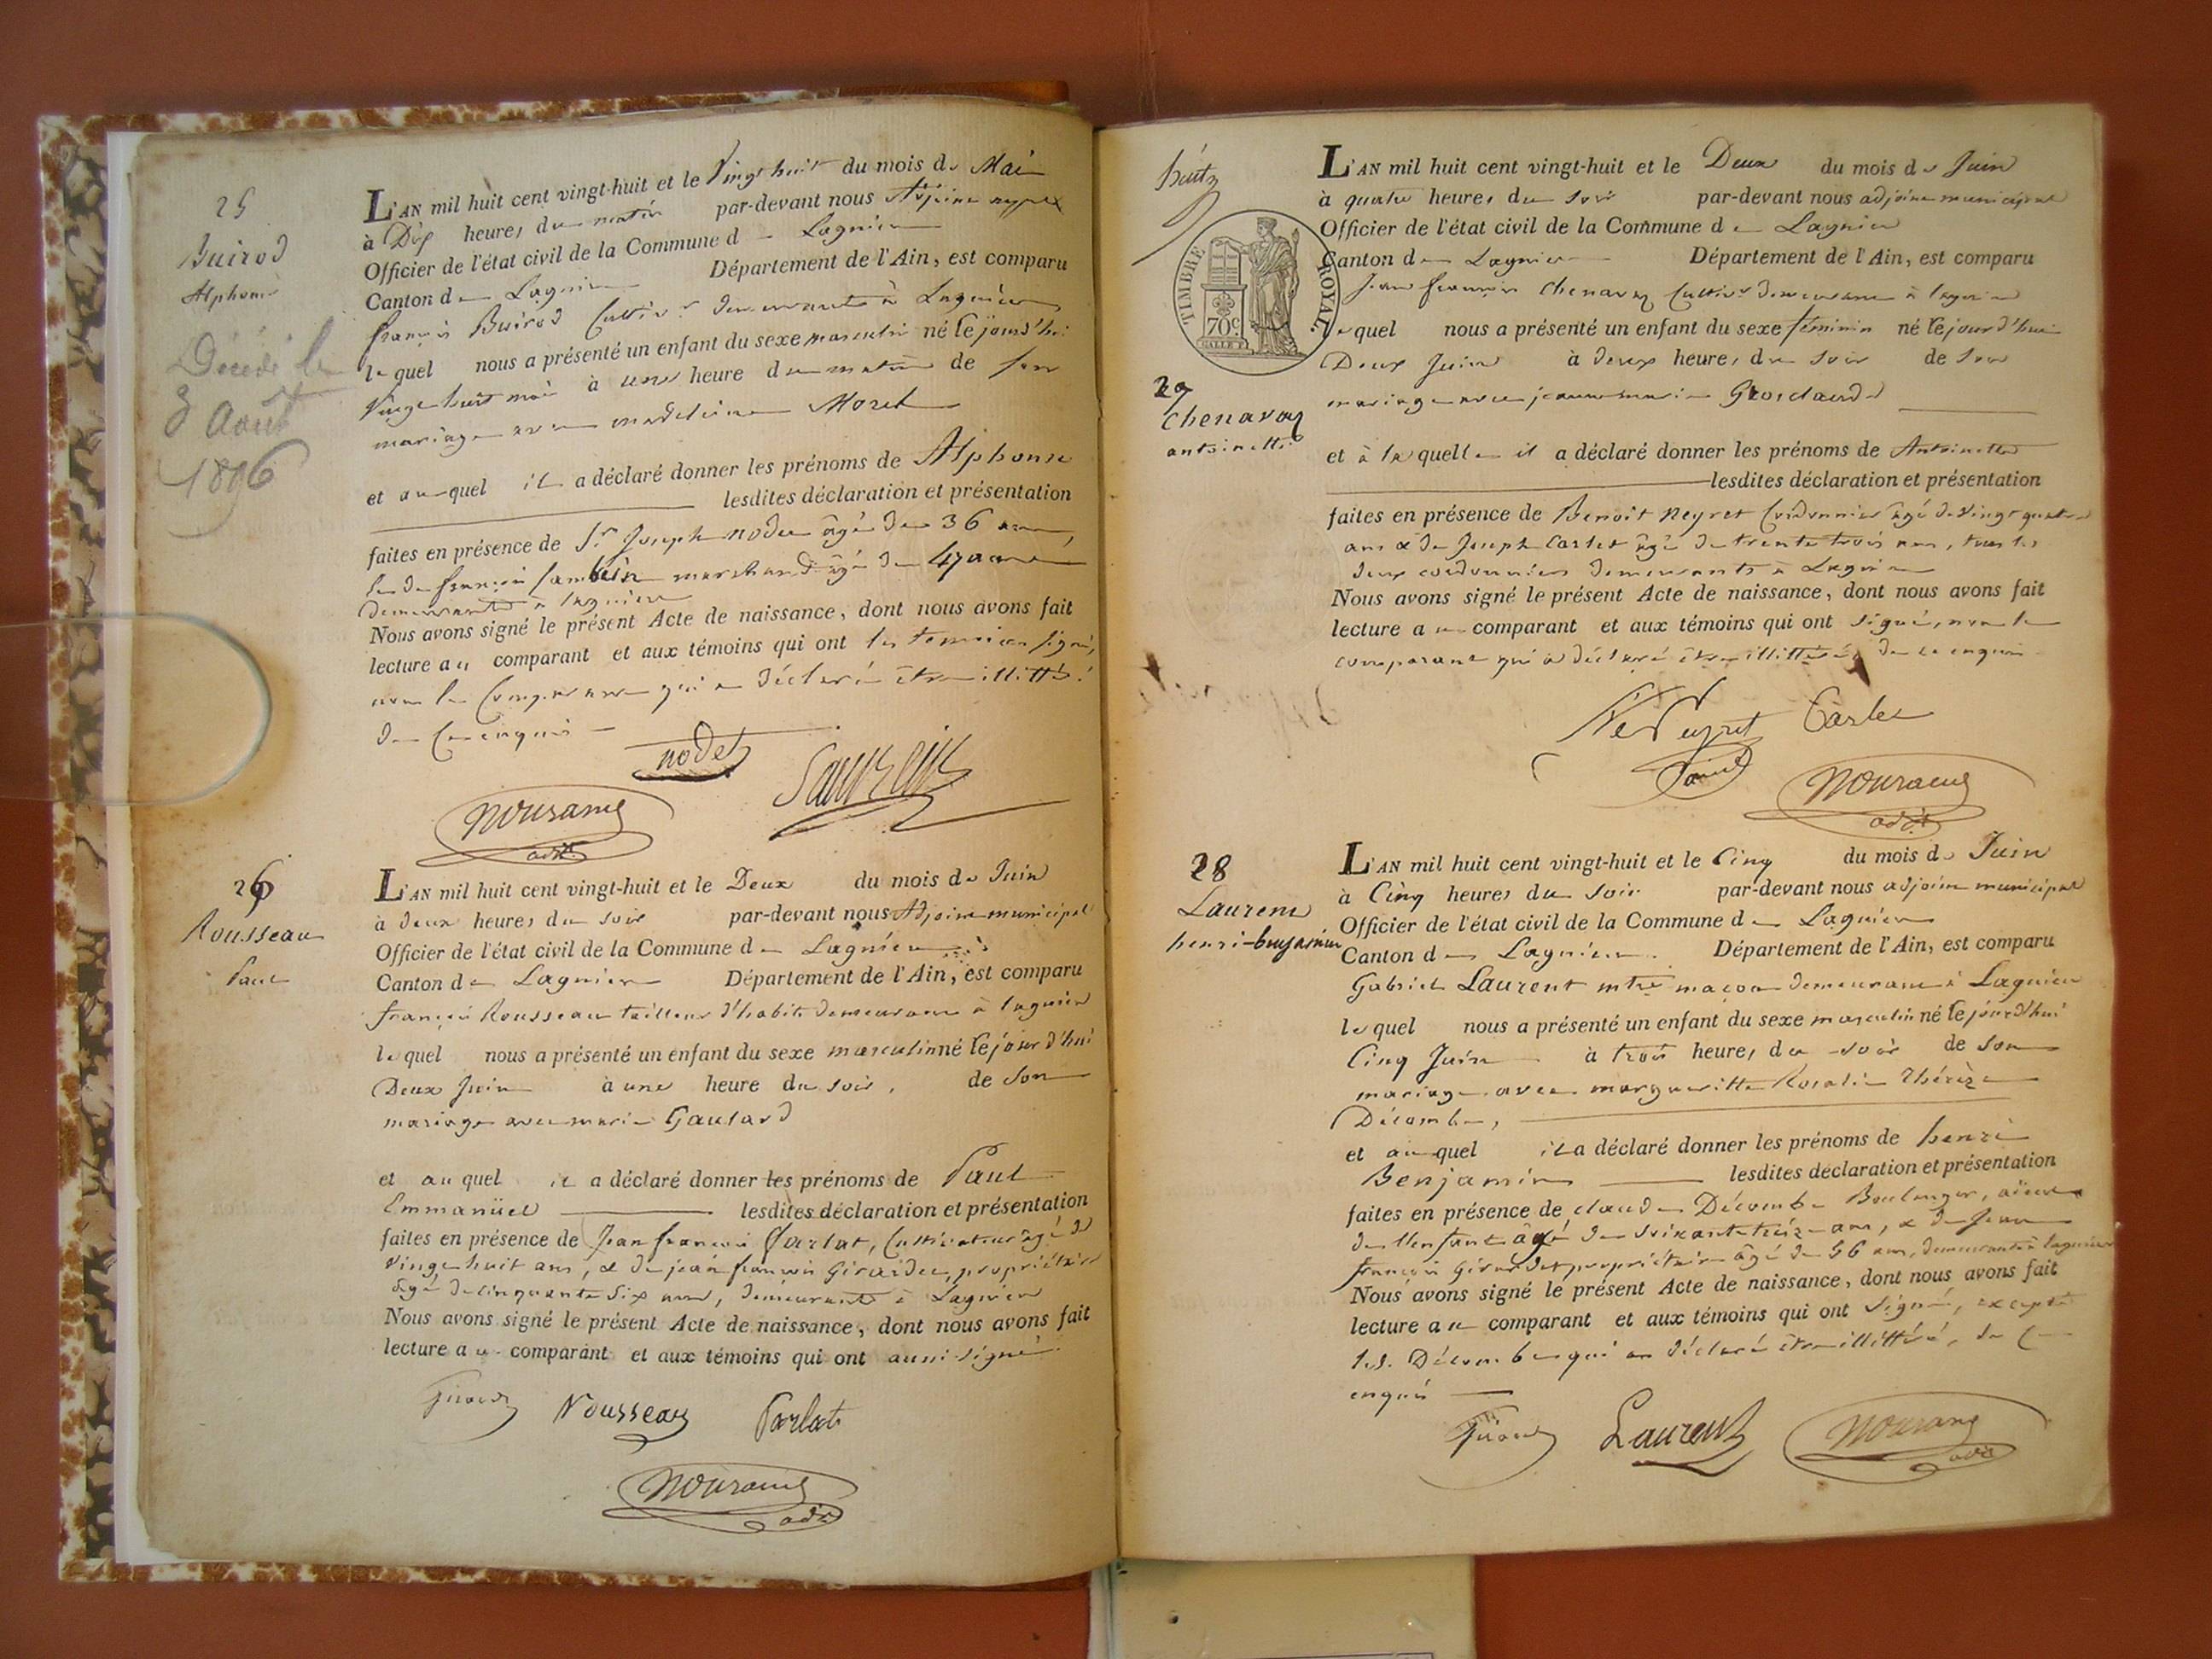 25
Buirod
Alphonse
Décédé le
3 Août
1896
L'AN mil huit cent vingt-huit et le Vingt huit du mois de Mai
à Dix heures du matin par-devant nous Adjoint
Officier de l'état civil de la Commune de Lagnieu
Canton de Lagnieu Département de l'Ain, est comparu
françois Buirod Cultivr demeurant à Lagnieu
lequel nous a présenté un enfant du sexe masculin né cejourd'hui
Vingt huit mai à une heure du matin de son
mariage avec madeleine Moret
et auquel il a déclaré donner les prénoms de Alphonse
lesdites déclaration et présentation
faites en présence de Sr Joseph nodet âgé de 36 ans,
de françois marchand âgé de 47 ans
demeurants à lagnieu
Nous avons signé le présent Acte de naissance, dont nous avons fait
lecture au comparant et aux témoins qui ont les temoins signé,
non le Comparant qui a déclaré être illittéré
de Ce enquis
nodet
adjt
26
Rousseau
Paul
L'AN mil huit cent vingt-huit et le Deux du mois de Juin
à deux heures du soir par-devant nous Adjoint municipal
Officier de l'état civil de la Commune de Lagnieu
Canton de Lagnieu Département de l'Ain, est comparu
françois Rousseau tailleur d'habits demeurant à lagnieu
lequel nous a présenté un enfant du sexe masculin né cejourd'hui
Deux Juin à une heure du soir, de son
mariage avec marie Gaulard
et auquel il a déclaré donner les prénoms de Paul
Emmanüel lesdites déclaration et présentation
faites en présence de Jean françois Parlat, Cultivateur âgé de
Vingt huit ans, & de jean françois Girardet, propriétaire
âgé de cinquante Six ans, demeurants à Lagnieu
Nous avons signé le présent Acte de naissance, dont nous avons fait
lecture au comparant et aux témoins qui ont aussi signé
Rousseau Parlat
adjt
huit
TIMBRE ROYAL
70c
27
Chenavaz
antoinette
L'AN mil huit cent vingt-huit et le Deux du mois de Juin
à quatre heures du soir par-devant nous adjoint municipal
Officier de l'état civil de la Commune de Lagnieu
Canton de Lagnieu Département de l'Ain, est comparu
Jean françois Chenavaz Cultivr demeurant à lagnieu
lequel nous a présenté un enfant du sexe féminin né cejourd'hui
Deux Juin à deux heures du soir de son
mariage avec jeanne marie
et à laquelle il a déclaré donner les prénoms de Antoinette
lesdites déclaration et présentation
faites en présence de Benoit Neyret Cordonnier âgé de vingt quatre
ans & de Joseph Carlet âgé de trente trois ans, tous les
deux cordonniers demeurants à Lagnieu
Nous avons signé le présent Acte de naissance, dont nous avons fait
lecture au comparant et aux témoins qui ont signé, non le
comparant qui a déclaré être illittéré, de ce enquis
Neyret Carlet
adjt
28
Laurent
henri-benjamin
L'AN mil huit cent vingt-huit et le Cinq du mois de Juin
à Cinq heures du soir par-devant nous adjoint municipal
Officier de l'état civil de la Commune de Lagnieu
Canton de Lagnieu Département de l'Ain, est comparu
Gabriel Laurent mtre maçon demeurant à Lagnieu
lequel nous a présenté un enfant du sexe masculin né cejourd'hui
Cinq Juin à trois heures du soir de son
mariage avec margueritte Rosalie Thérèze
Décombe,
et auquel il a déclaré donner les prénoms de henri
Benjamin lesdites déclaration et présentation
faites en présence de claude Décombe Boulanger, aïeul
de l'enfant âgé de soixante treize ans, & de Jean
françois Girardet propriétaire âgé de 56 ans, demeurants à lagnieu
Nous avons signé le présent Acte de naissance, dont nous avons fait
lecture au comparant et aux témoins qui ont signé, excepté
led. Décombe qui a déclaré être illittéré, de Ce
enquis
Laurent
adjt